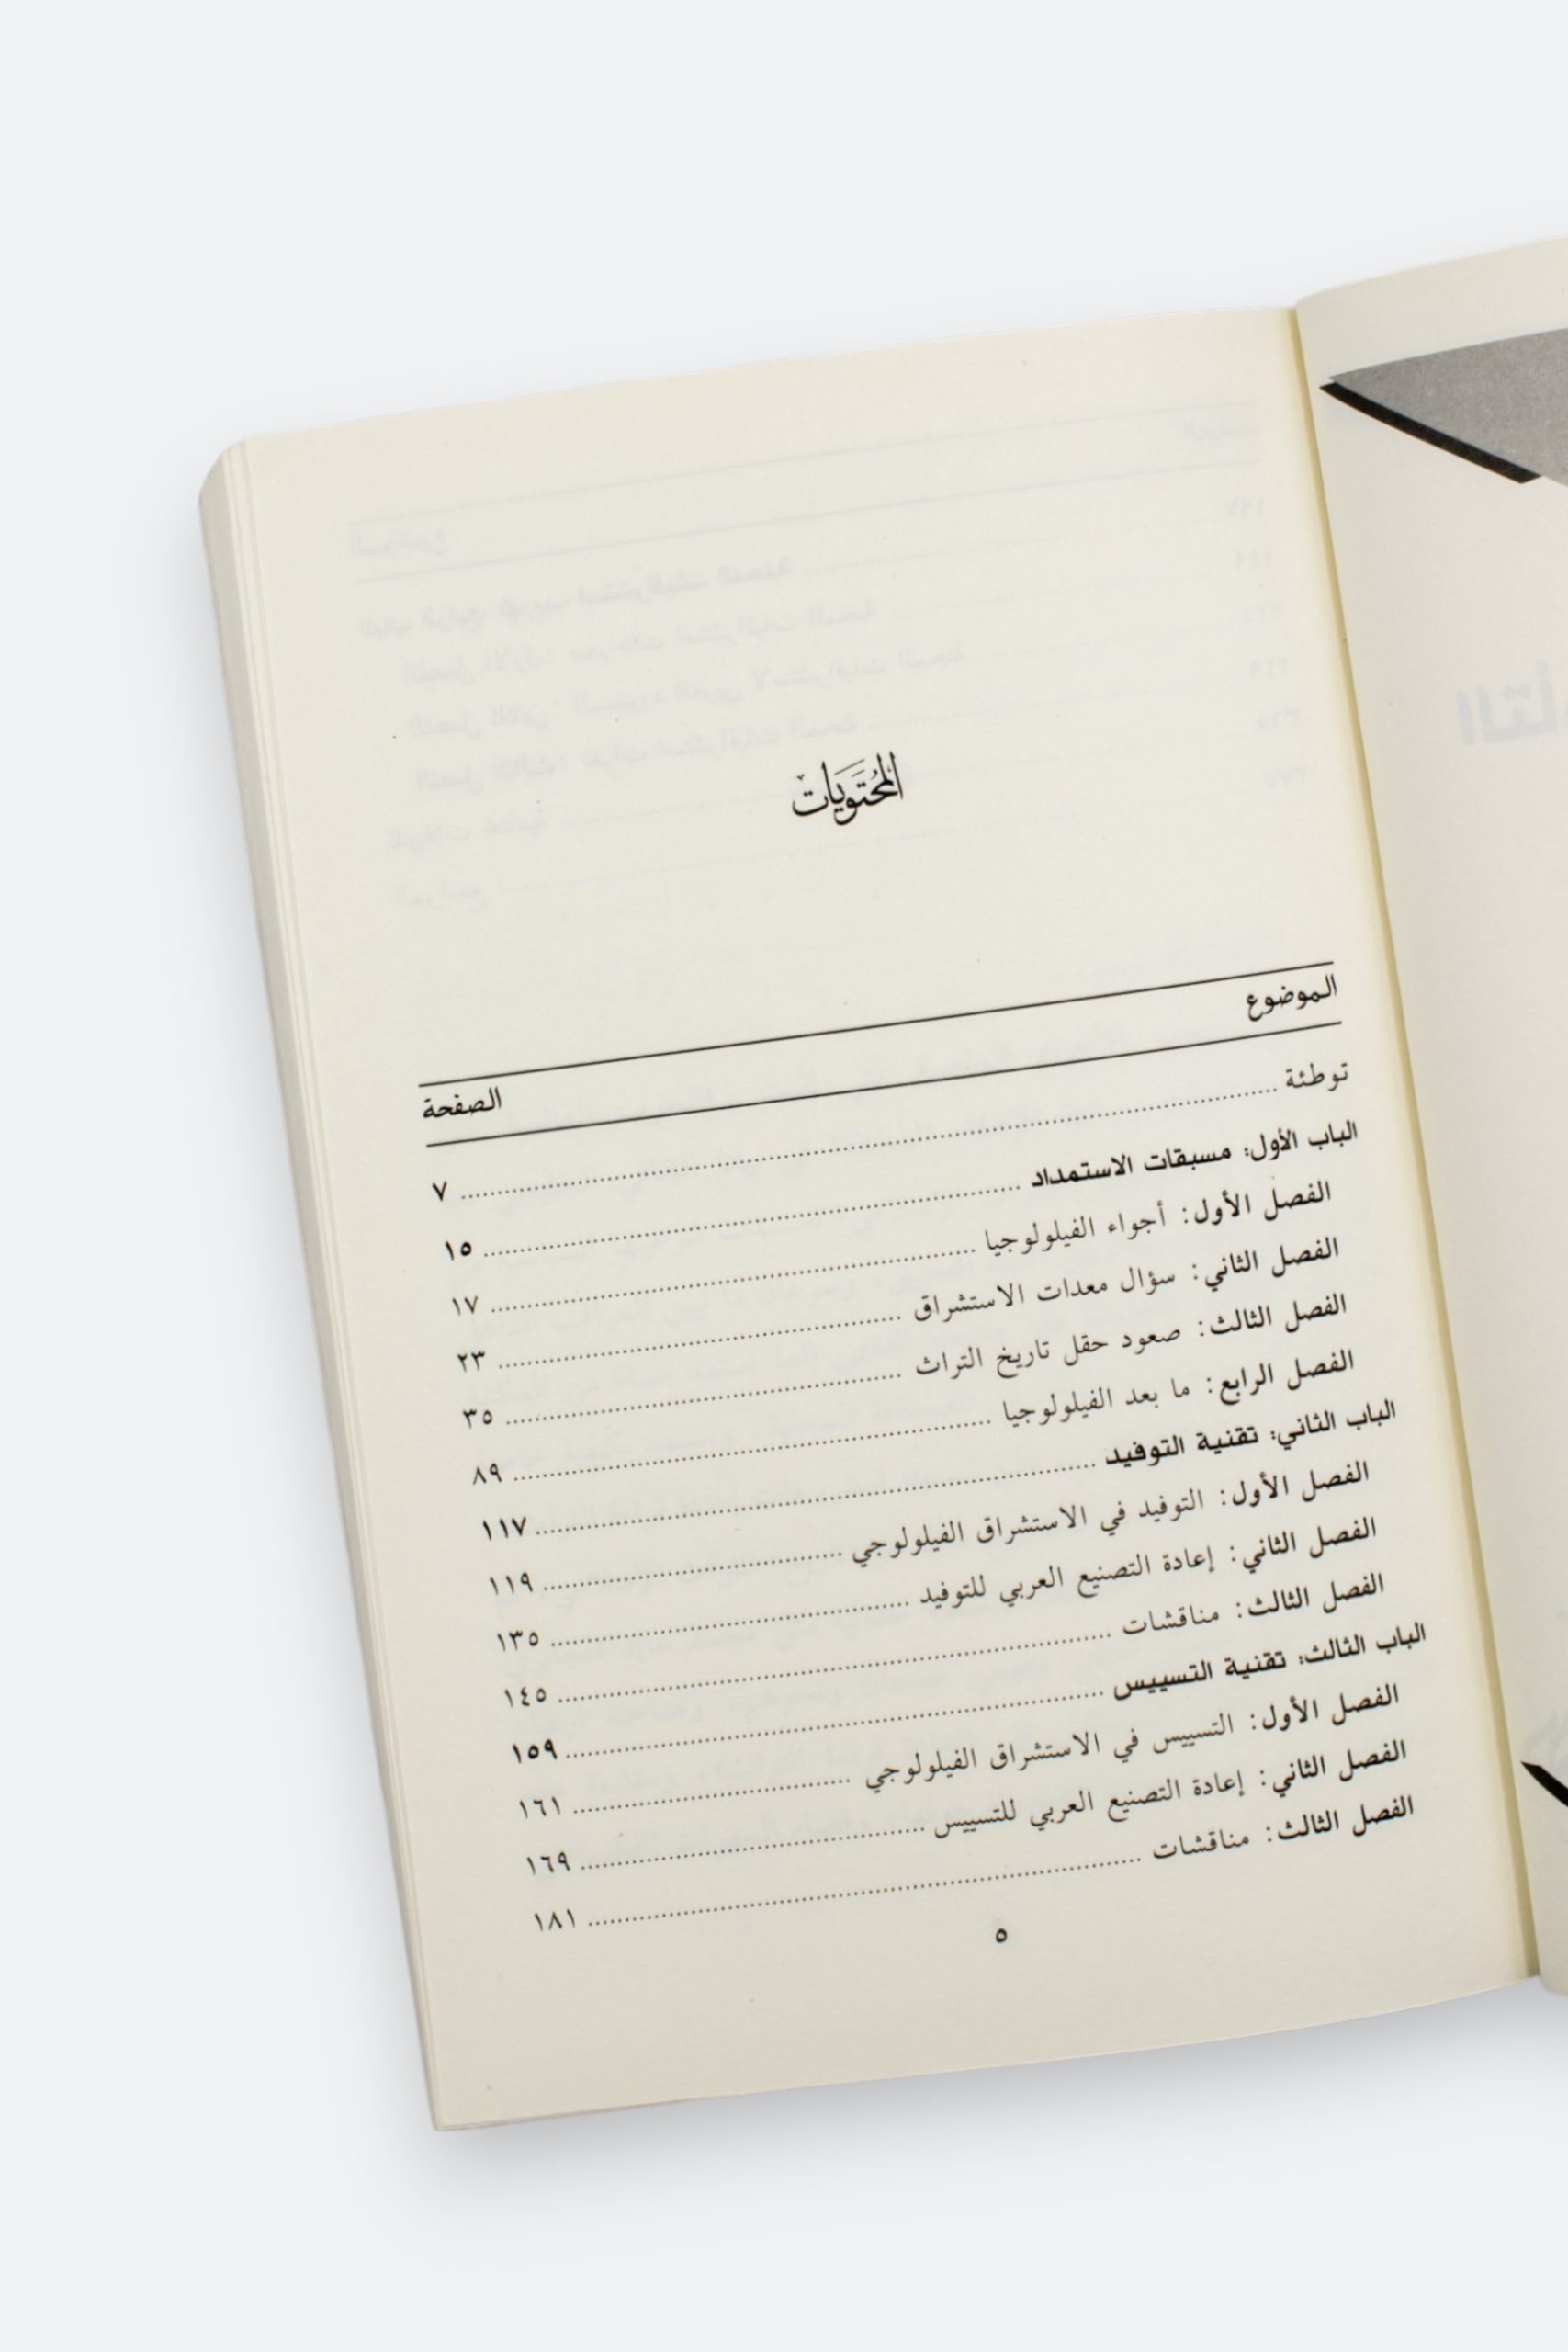 المُحْتَوَيَات
الموضوع الصفحة
توطئة ........ ٧
الباب الأول: مسبقات الاستمداد ........ ١٥
الفصل الأول: أجواء الفيلولوجيا ........ ١٧
الفصل الثاني: سؤال معدات الاستشراق ........ ٢٣
الفصل الثالث: صعود حقل تاريخ التراث ........ ٣٥
الفصل الرابع: ما بعد الفيلولوجيا ........ ٨٩
الباب الثاني: تقنية التوفيد ........ ١١٧
الفصل الأول: التوفيد في الاستشراق الفيلولوجي ........ ١١٩
الفصل الثاني: إعادة التصنيع العربي للتوفيد ........ ١٣٥
الفصل الثالث: مناقشات ........ ١٤٥
الباب الثالث: تقنية التسييس ........ ١٥٩
الفصل الأول: التسييس في الاستشراق الفيلولوجي ........ ١٦١
الفصل الثاني: إعادة التصنيع العربي للتسييس ........ ١٦٩
الفصل الثالث: مناقشات ........ ١٨١
٥